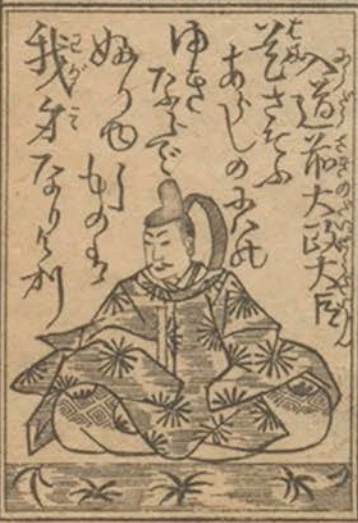 入道前大政大臣
花さそふ
あらしのにはの
ゆき
ならで
ふりゆく
ものは
我身なりけり